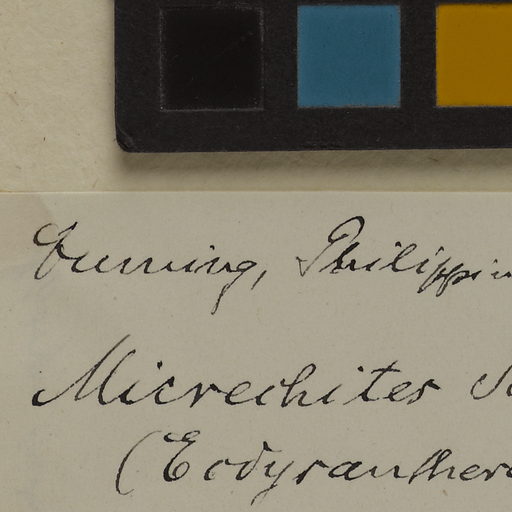 Cuming, Philippin
Microchites S
(Ecdysanthera